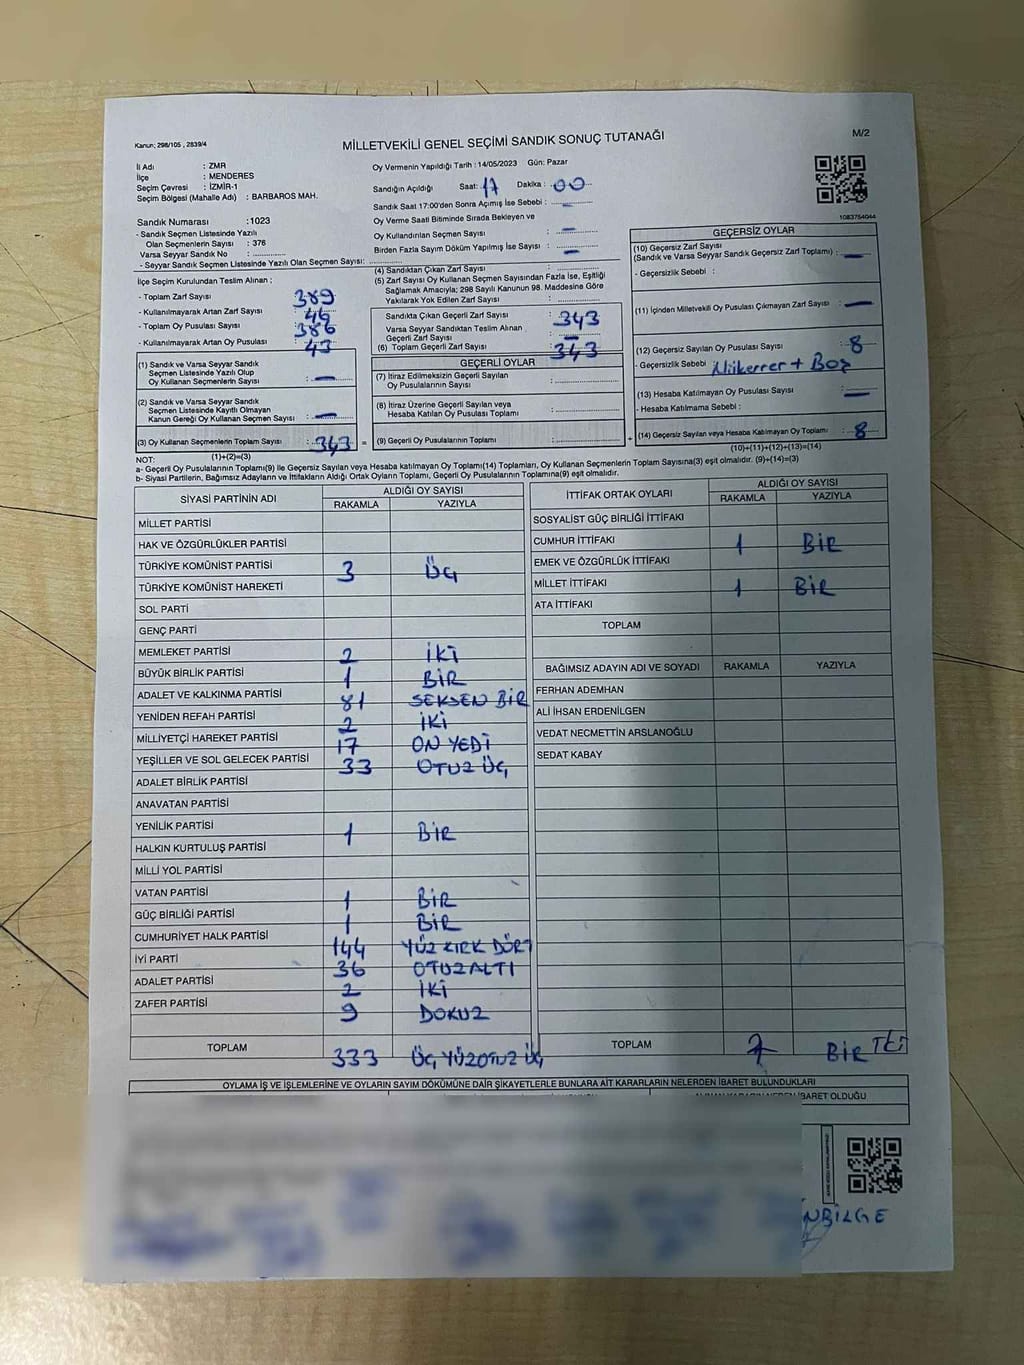 Kanun; 298/105 , 2839/4
MİLLETVEKİLİ GENEL SEÇİMİ SANDIK SONUÇ TUTANAĞI
M/2
İl Adı : ZMR
İlçe : MENDERES
Seçim Çevresi : İZMİR-1
Seçim Bölgesi (Mahalle Adı) : BARBAROS MAH.
Oy Vermenin Yapıldığı Tarih : 14/05/2023 Gün: Pazar
Sandığın Açıldığı Saat: 17 Dakika : 00
Sandık Saat 17:00'den Sonra Açımış İse Sebebi : —
Oy Verme Saati Bitiminde Sırada Bekleyen ve
Oy Kullandırılan Seçmen Sayısı : —
Birden Fazla Sayım Döküm Yapılmış İse Sayısı : —
1083754044
Sandık Numarası : 1023
- Sandık Seçmen Listesinde Yazılı
Olan Seçmenlerin Sayısı : 376
Varsa Seyyar Sandık No :
- Seyyar Sandık Seçmen Listesinde Yazılı Olan Seçmen Sayısı:
İlçe Seçim Kurulundan Teslim Alınan ;
- Toplam Zarf Sayısı : 389
- Kullanılmayarak Artan Zarf Sayısı : 46
- Toplam Oy Pusulası Sayısı : 386
- Kullanılmayarak Artan Oy Pusulası : 43
(1) Sandık ve Varsa Seyyar Sandık
Seçmen Listesinde Yazılı Olup
Oy Kullanan Seçmenlerin Sayısı : —
(2) Sandık ve Varsa Seyyar Sandık
Seçmen Listesinde Kayıtlı Olmayan
Kanun Gereği Oy Kullanan Seçmen Sayısı : —
(3) Oy Kullanan Seçmenlerin Toplam Sayısı : 343 =
(1)+(2)=(3)
(4) Sandıktan Çıkan Zarf Sayısı :
(5) Zarf Sayısı Oy Kullanan Seçmen Sayısından Fazla İse, Eşitliği
Sağlamak Amacıyla; 298 Sayılı Kanunun 98. Maddesine Göre
Yakılarak Yok Edilen Zarf Sayısı :
Sandıkta Çıkan Geçerli Zarf Sayısı : 343
Varsa Seyyar Sandıktan Teslim Alınan
Geçerli Zarf Sayısı : —
(6) Toplam Geçerli Zarf Sayısı : 343
GEÇERLİ OYLAR
(7) İtiraz Edilmeksizin Geçerli Sayılan
Oy Pusulalarının Sayısı :
(8) İtiraz Üzerine Geçerli Sayılan veya
Hesaba Katılan Oy Pusulası Toplamı :
(9) Geçerli Oy Pusulalarının Toplamı : +
GEÇERSİZ OYLAR
(10) Geçersiz Zarf Sayısı
(Sandık ve Varsa Seyyar Sandık Geçersiz Zarf Toplamı) : —
- Geçersizlik Sebebi :
(11) İçinden Milletvekili Oy Pusulası Çıkmayan Zarf Sayısı : —
(12) Geçersiz Sayılan Oy Pusulası Sayısı : 8
- Geçersizlik Sebebi : Mükerrer + Boş
(13) Hesaba Katılmayan Oy Pusulası Sayısı : —
- Hesaba Katılmama Sebebi :
(14) Geçersiz Sayılan veya Hesaba Katılmayan Oy Toplamı : 8
(10)+(11)+(12)+(13)=(14)
NOT:
a- Geçerli Oy Pusulalarının Toplamı(9) ile Geçersiz Sayılan veya Hesaba katılmayan Oy Toplamı(14) Toplamları, Oy Kullanan Seçmenlerin Toplam Sayısına(3) eşit olmalıdır. (9)+(14)=(3)
b- Siyasi Partilerin, Bağımsız Adayların ve İttifakların Aldığı Ortak Oyların Toplamı, Geçerli Oy Pusulalarının Toplamına(9) eşit olmalıdır.
SİYASİ PARTİNİN ADI ALDIĞI OY SAYISI
RAKAMLA YAZIYLA
MİLLET PARTİSİ
HAK VE ÖZGÜRLÜKLER PARTİSİ
TÜRKİYE KOMÜNİST PARTİSİ 3 ÜÇ
TÜRKİYE KOMÜNİST HAREKETİ
SOL PARTİ
GENÇ PARTİ
MEMLEKET PARTİSİ 2 İKİ
BÜYÜK BİRLİK PARTİSİ 1 BİR
ADALET VE KALKINMA PARTİSİ 81 SEKSEN BİR
YENİDEN REFAH PARTİSİ 2 İKİ
MİLLİYETÇİ HAREKET PARTİSİ 17 ON YEDİ
YEŞİLLER VE SOL GELECEK PARTİSİ 33 OTUZ ÜÇ
ADALET BİRLİK PARTİSİ
ANAVATAN PARTİSİ
YENİLİK PARTİSİ 1 BİR
HALKIN KURTULUŞ PARTİSİ
MİLLİ YOL PARTİSİ
VATAN PARTİSİ 1 BİR
GÜÇ BİRLİĞİ PARTİSİ 1 BİR
CUMHURİYET HALK PARTİSİ 144 YÜZ KIRK DÖRT
İYİ PARTİ 36 OTUZALTI
ADALET PARTİSİ 2 İKİ
ZAFER PARTİSİ 9 DOKUZ
TOPLAM 333 ÜÇ YÜZOTUZ ÜÇ
İTTİFAK ORTAK OYLARI ALDIĞI OY SAYISI
RAKAMLA YAZIYLA
SOSYALİST GÜÇ BİRLİĞİ İTTİFAKI
CUMHUR İTTİFAKI 1 BİR
EMEK VE ÖZGÜRLÜK İTTİFAKI
MİLLET İTTİFAKI 1 BİR
ATA İTTİFAKI
TOPLAM
BAĞIMSIZ ADAYIN ADI VE SOYADI RAKAMLA YAZIYLA
FERHAN ADEMHAN
ALİ İHSAN ERDENİLGEN
VEDAT NECMETTİN ARSLANOĞLU
SEDAT KABAY
TOPLAM BİR İKİ
OYLAMA İŞ VE İŞLEMLERİNE VE OYLARIN SAYIM DÖKÜMÜNE DAİR ŞİKAYETLERLE BUNLARA AİT KARARLARIN NELERDEN İBARET BULUNDUKLARI
İBARET OLDUĞU
NBİLGE